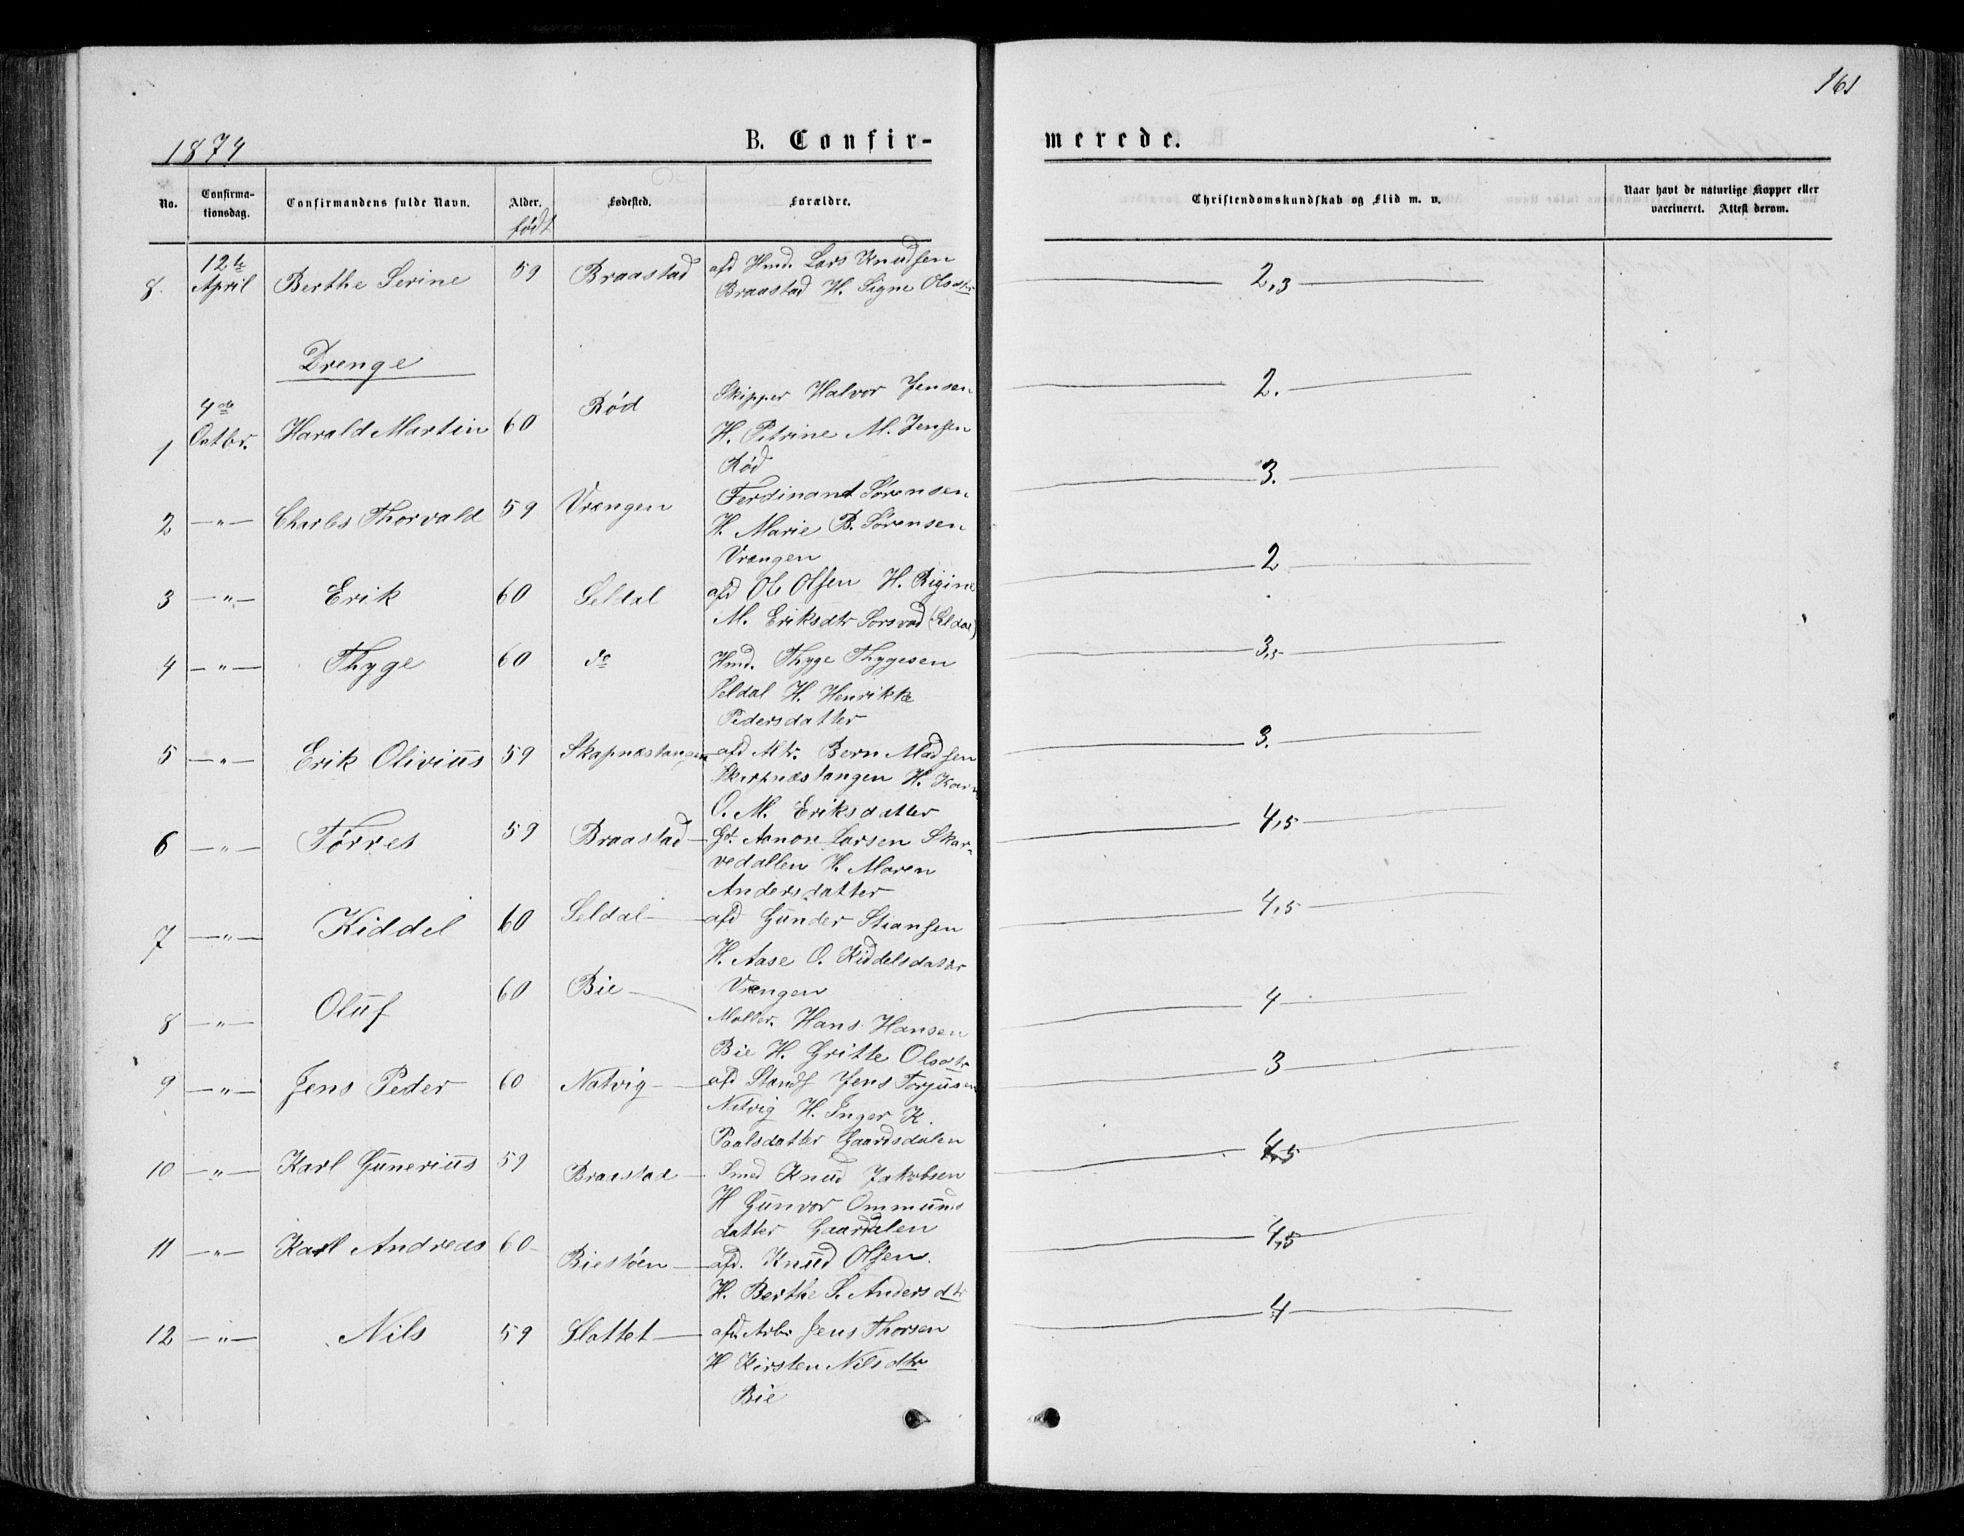 161
1874 B. Confir- merede.
No. Confirma-tionsdag. Confirmandens fulde Navn. Alder. Fødested. Forældre. Christendomskundskab og Flid m. v. Naar havt de naturlige Kopper eller vaccineret. Attest derom.
født
8. 12te April Berthe Serine 59 Braastad afd Hmd. Lars Knudsen 2,3
Braastad H. Signe Olsdtr
Drenge
1 4de Octbr. Harald Martin 60 Rød Skipper Halvor Jensen 2.
H. Petrine M. Jensen
Rød
2 —"— Charles Thorvald 59 Vrængen Ferdinant Sørensen 3.
H. Marie B. Sørensen
Vrængen
3 —"— Erik 60 Seldal afd Ole Olsen H. Rigine 2
M. Eriksdtr Sorsvad (Seldal)
4 —"— Thyge 60 do Hmd. Thyge Thygesen 3,5
Seldal H. Henrikke
Pedersdatter
5 —"— Erik Olivius 59 Skapnæstangen afd Mtr. Bern Madsen 3.
Skarpnæstangen H. Karn
O. M. Eriksdatter
6 —"— Tørres 59 Braastad Gd. Aanon Larsen Skar- 4,5
vedallen H. Maren
Andersdatter
7 —"— Kiddel 60 Seldal afd Gunder Stiansen 4,5
H. Aase O. Kiddelsdatter
Vrengen
8 —"— Oluf 60 Bie Matr. Hans Hansen 4
Bie H. Gritte Olsdtr
9 —"— Jens Peder 60 Natvig afd Standf Jens Torjusen 3
Natvig H. Inger K.
Paalsdatter Gaardsdalen
10 —"— Karl Gunerius 59 Braastad Smed Knud Jakobsen 4,5
H Gunvor Ommunds
datter Gaardalen
11 —"— Karl Andreas 60 Biestøen afd. Knud Olsen. 4,5
H. Berthe S. Andersdtr
12 —"— Nils 59 Slottet afd. Arbr Jens Thorsen 4
H Kirsten Nilsdtr
Bie